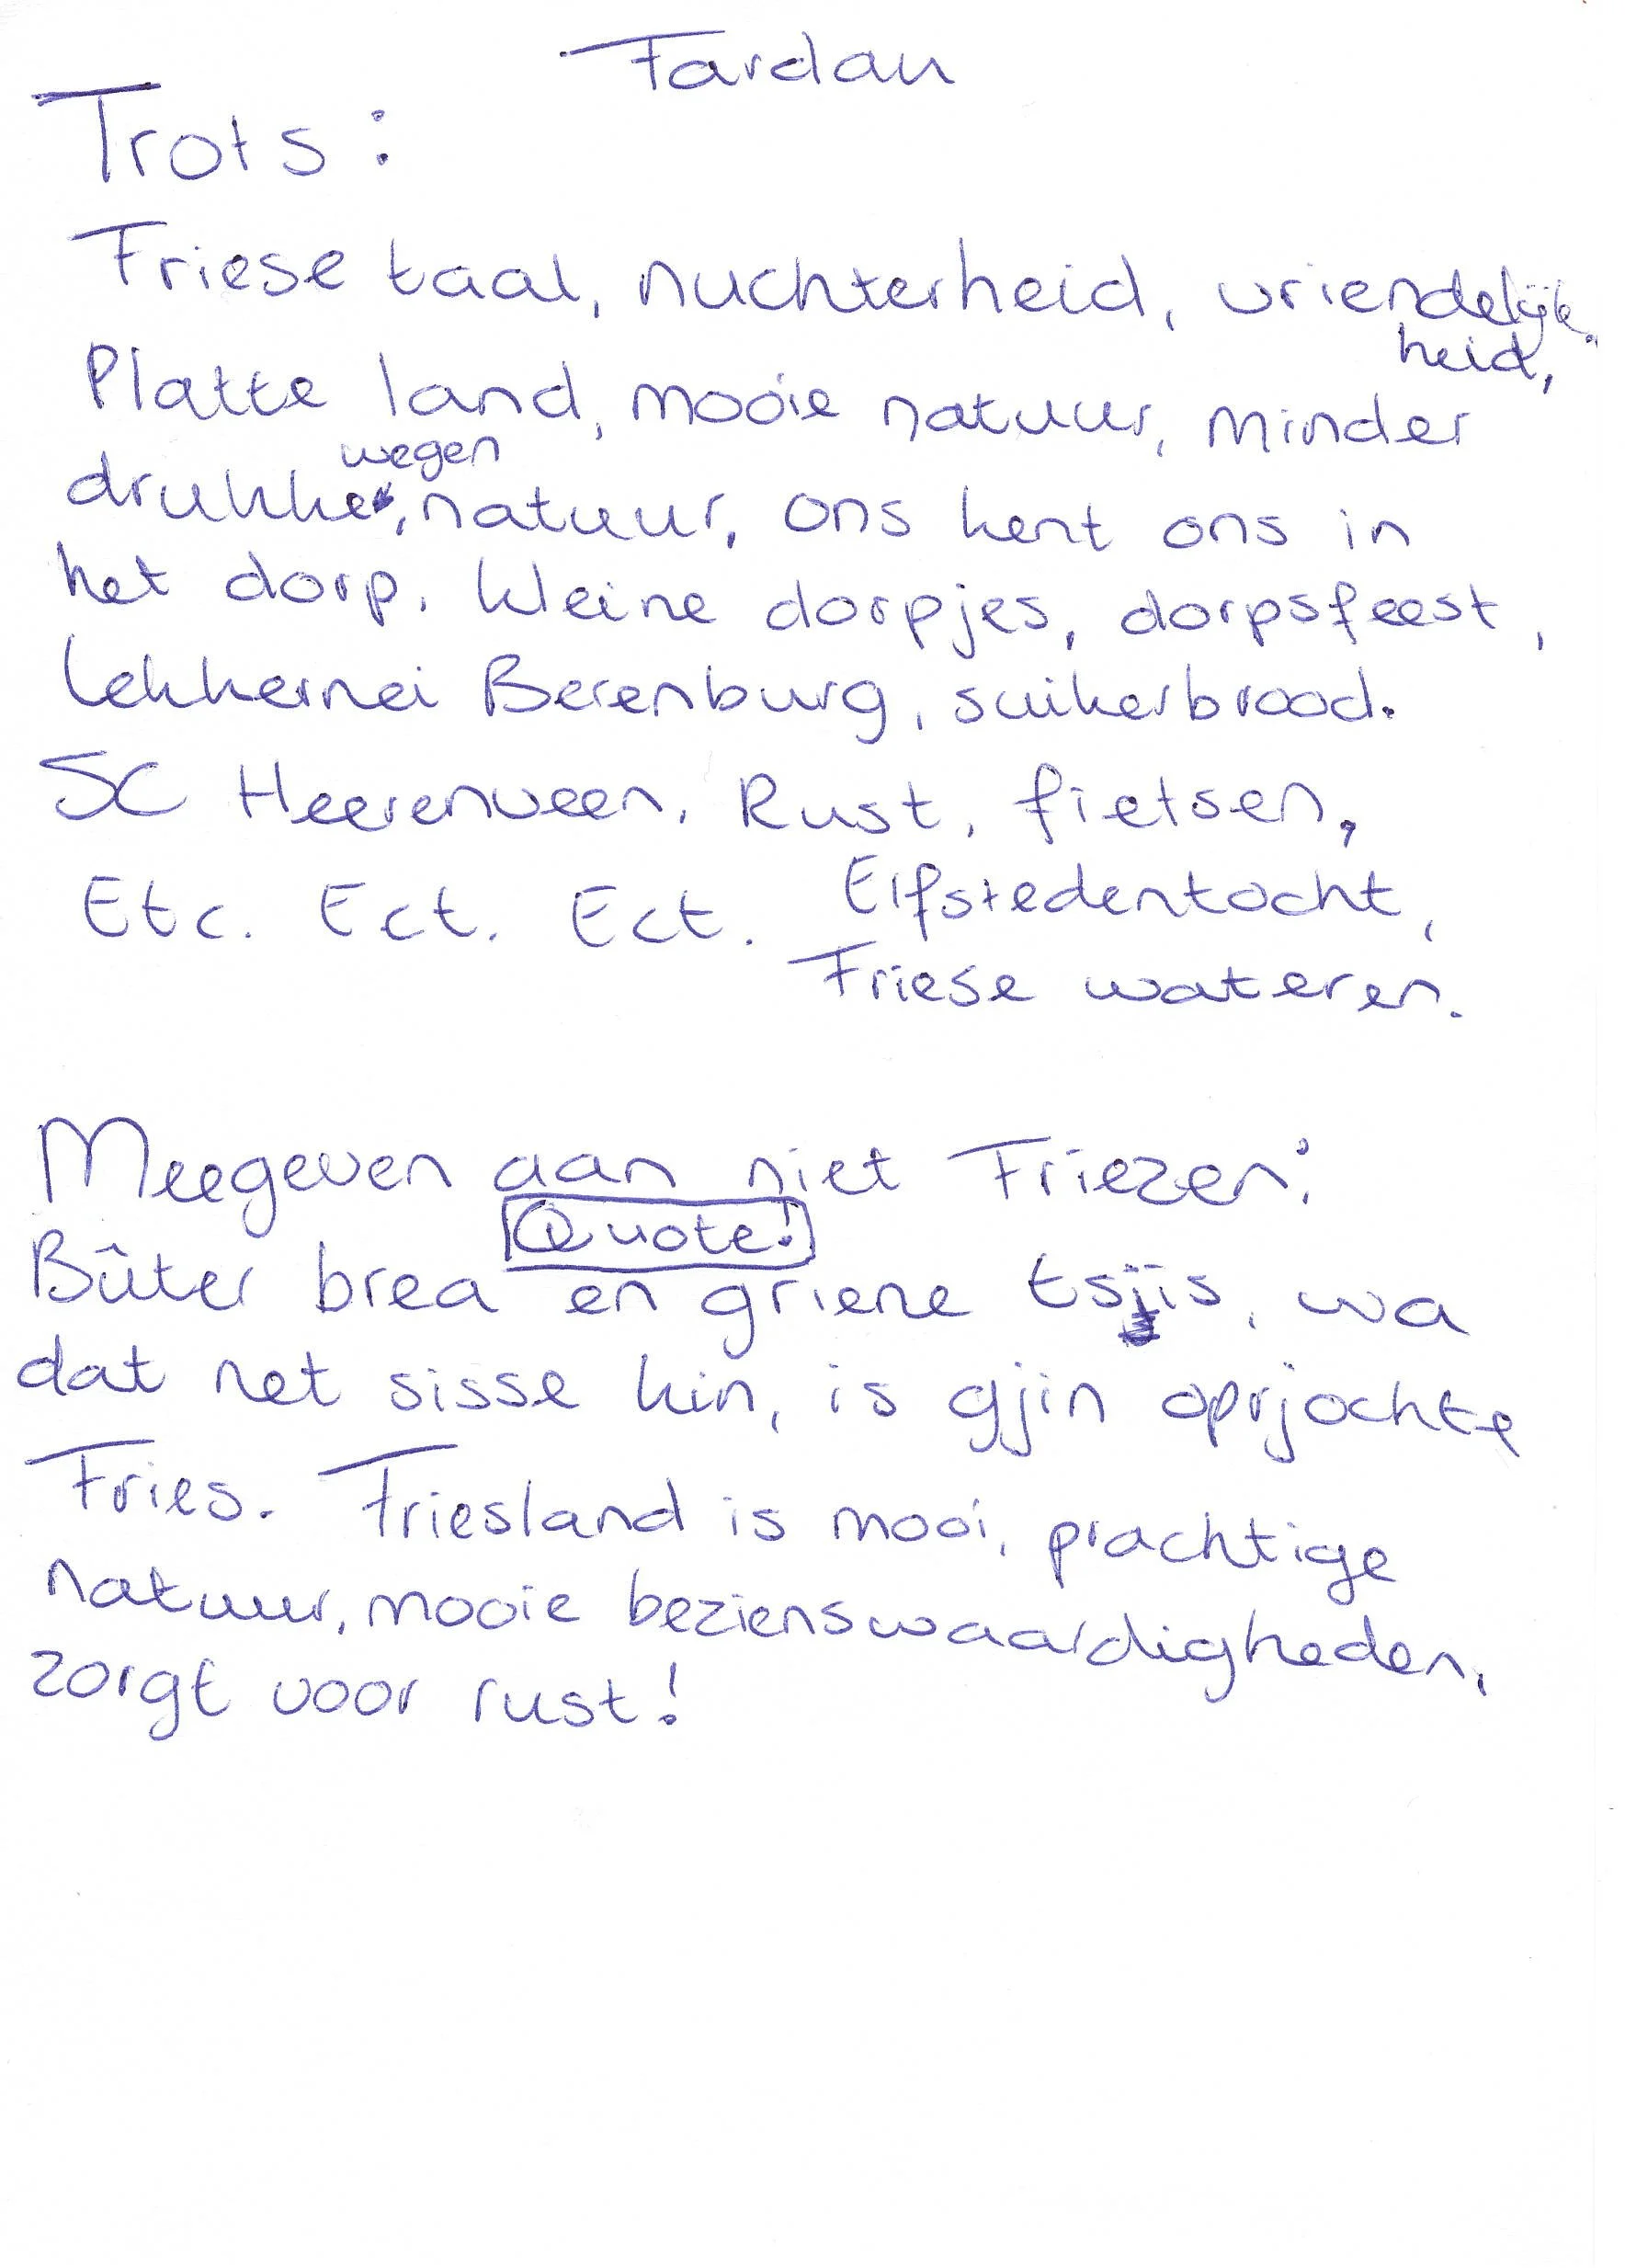 Fardau
Trots:
Friese taal, nuchterheid, vriendelijk-
heid,
Platte land, mooie natuur, minder
wegen
drukke, natuur, ons kent ons in
het dorp. Kleine dorpjes, dorpsfeest,
Lekkernei Berenburg, suikerbrood.
SC Heerenveen, Rust, fietsen,
Etc. Ect. Ect. Elfstedentocht,
Friese wateren.
Meegeven aan niet Friezen:
Quote!
Bûter brea en griene tsiis, wa
dat net sisse kin, is gjin oprjochte
Fries. Friesland is mooi, prachtige
natuur, mooie bezienswaardigheden,
zorgt voor rust!